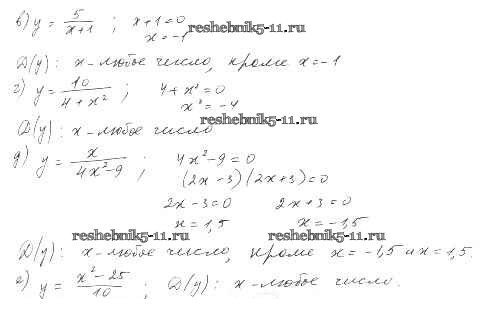 в) y = 5/(x+1) ; x+1=0
x=-1
reshebnik5-11.ru
D(y): x-любое число, кроме x=-1
г) y = 10/(4+x²) ; 4+x²=0
x²=-4
reshebnik5-11.ru
D(y): x-любое число
д) y = x/(4x²-9) ; 4x²-9=0
(2x-3)(2x+3)=0
2x-3=0 2x+3=0
x=1,5 x=-1,5
reshebnik5-11.ru reshebnik5-11.ru
D(y): x-любое число, кроме x=-1,5 и x=1,5.
е) y = (x²-25)/10 ; D(y): x-любое число.